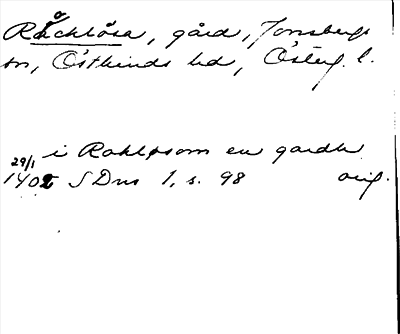 Råcklösa, gård, Jonsbergs
sn, Östkinds hd, Österg. l.
i Rakløsom en gardh
29/1
1402 SDns 1, s. 98 orig.